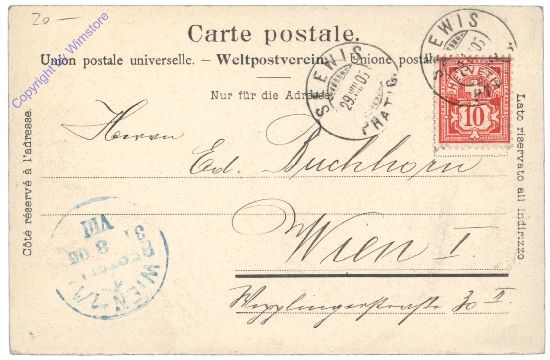 20-
Copyright by Wimstore
Carte postale.
Union postale universelle. — Weltpostverein. Unione postale
Nur für die Adresse.
SEEWIS
29.VII.05
PRÄTIG.
SEEWIS
HELVETIA
10
Côté réservé à l'adresse.
Lato riservato all indirizzo
Herrn
Ed. Buchhorn
Wien I.
Wipplingerstraße 30 II
WIEN 1/1
31
VII
8 05